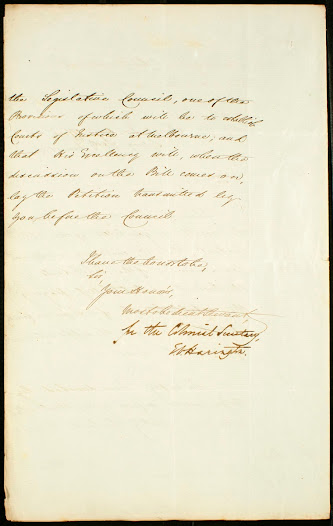 the Legislative Council, one of the
Provisions of which will be to establish
Courts of Justice at Melbourne; and
that His Excellency will, when the
discussion on the Bill comes on,
lay the Petition transmitted by
you before the Council
I have the honor to be,
Sir,
Your Honor's,
most obedient Servant,
for the Colonial Secretary,
Harington.